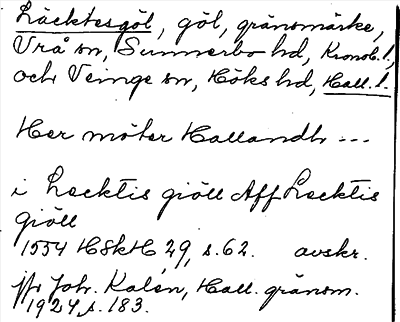 Läcktesgöl, göl, gränsmärke,
Vrå sn, Sunnerbo hd, Kronob. l.,
och Veinge sn, Höks hd, Hall. l.
Her möter Hallandh ---
i Lacktis giöll Aff Lacktis
giöll
1554 HSkH 29, s. 62. avskr.
jfr Joh. Kalén, Hall. gränsm.
1924, s. 183.